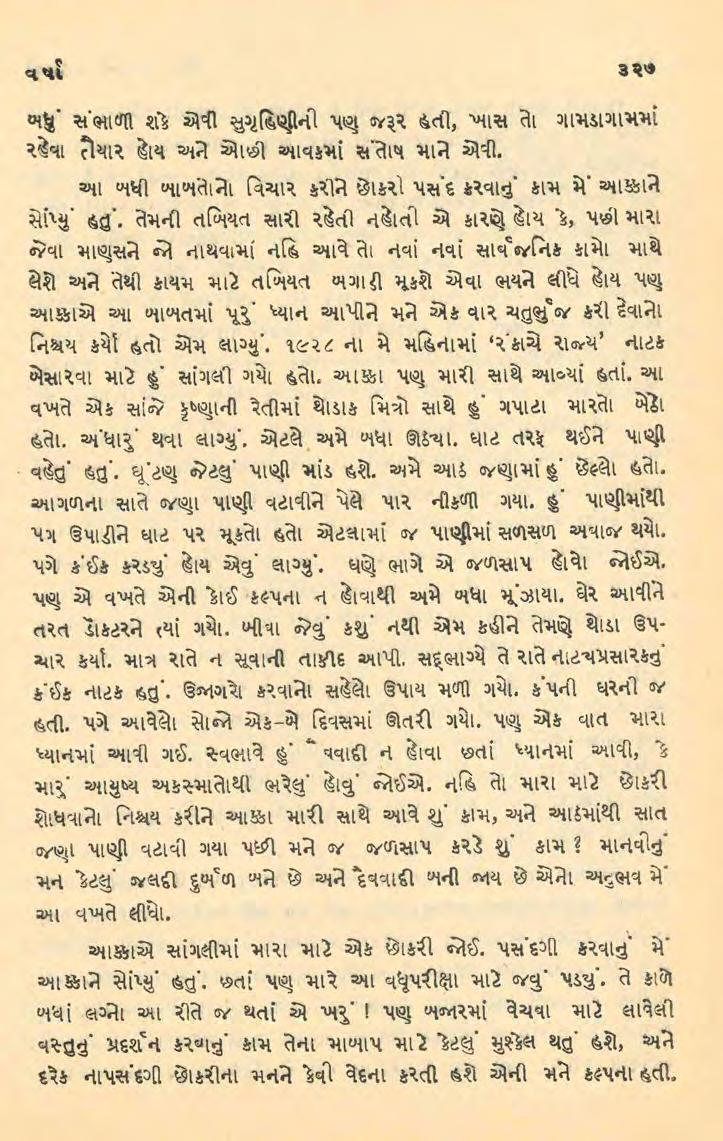 વર્ષા ૩૨૭
બધું સંભાળી શકે એવી સુગૃહિણીની પણ જરૂર હતી, ખાસ તો ગામડાગામમાં
રહેવા તૈયાર હોય અને ઓછી આવકમાં સંતોષ માને એવી.
આ બધી બાબતોનો વિચાર કરીને છોકરી પસંદ કરવાનું કામ મેં આક્કાને
સોંપ્યું હતું. તેમની તબિયત સારી રહેતી નહોતી એ કારણે હોય કે, પછી મારા
જેવા માણસને જો નાથવામાં નહિ આવે તો નવાં નવાં સાર્વજનિક કામો માથે
લેશે અને તેથી કાયમ માટે તબિયત બગાડી મૂકશે એવા ભયને લીધે હોય પણ
આક્કાએ આ બાબતમાં પૂરું ધ્યાન આપીને મને એક વાર ચતુર્ભુજ કરી દેવાનો
નિશ્ચય કર્યો હતો એમ લાગ્યું. ૧૯૨૮ ના મે મહિનામાં ‘રંકાચે રાજ્ય’ નાટક
બેસારવા માટે હું સાંગલી ગયો હતો. આક્કા પણ મારી સાથે આવ્યાં હતાં. આ
વખતે એક સાંજે કૃષ્ણાની રેતીમાં થોડાક મિત્રો સાથે હું ગપાટા મારતો બેઠો
હતો. અંધારું થવા લાગ્યું. એટલે અમે બધા ઊઠ્યા. ઘાટ તરફ થઈને પાણી
વહેતું હતું. ઘૂંટણ જેટલું પાણી માંડ હશે. અમે આઠ જણામાં હું છેલ્લો હતો.
આગળના સાતે જણા પાણી વટાવીને પેલે પાર નીકળી ગયા. હું પાણીમાંથી
પગ ઉપાડીને ઘાટ પર મૂકતો હતો એટલામાં જ પાણીમાં સળસળ અવાજ થયો.
પગે કંઈક કરડ્યું હોય એવું લાગ્યું. ઘણે ભાગે એ જળસાપ હોવો જોઈએ.
પણ એ વખતે એની કોઈ કલ્પના ન હોવાથી અમે બધા મૂંઝાયા. ઘેર આવીને
તરત ડૉકટરને ત્યાં ગયો. બીવા જેવું કશું નથી એમ કહીને તેમણે થોડા ઉપ-
ચાર કર્યા. માત્ર રાતે ન સૂવાની તાકીદ આપી. સદ્ભાગ્યે તે રાતે નાટ્યપ્રસારકનું
કંઈક નાટક હતું. ઉજાગરો કરવાનો સહેલો ઉપાય મળી ગયો. કંપની ઘરની જ
હતી. પગે આવેલો સોજો એક-બે દિવસમાં ઊતરી ગયો. પણ એક વાત મારા
ધ્યાનમાં આવી ગઈ. સ્વભાવે હું વવાદી ન હોવા છતાં ધ્યાનમાં આવી, કે
મારું આયુષ્ય અકસ્માતોથી ભરેલું હોવું જોઈએ. નહિ તો મારા માટે છોકરી
શોધવાનો નિશ્ચય કરીને આક્કા મારી સાથે આવે શું કામ, અને આઠમાંથી સાત
જણા પાણી વટાવી ગયા પછી મને જ જળસાપ કરડે શું કામ ? માનવીનું
મન કેટલું જલદી દુર્બળ બને છે અને દૈવવાદી બની જાય છે એનો અનુભવ મેં
આ વખતે લીધો.
આક્કાએ સાંગલીમાં મારા માટે એક છોકરી જોઈ. પસંદગી કરવાનું મેં
આક્કાને સોંપ્યું હતું. છતાં પણ મારે આ વધૂપરીક્ષા માટે જવું પડ્યું. તે કાળે
બધાં લગ્નો આ રીતે જ થતાં એ ખરું ! પણ બજારમાં વેચવા માટે લાવેલી
વસ્તુનું પ્રદર્શન કરવાનું કામ તેના માબાપ માટે કેટલું મુશ્કેલ થતું હશે, અને
દરેક નાપસંદગી છોકરીના મનને કેવી વેદના કરતી હશે એની મને કલ્પના હતી.